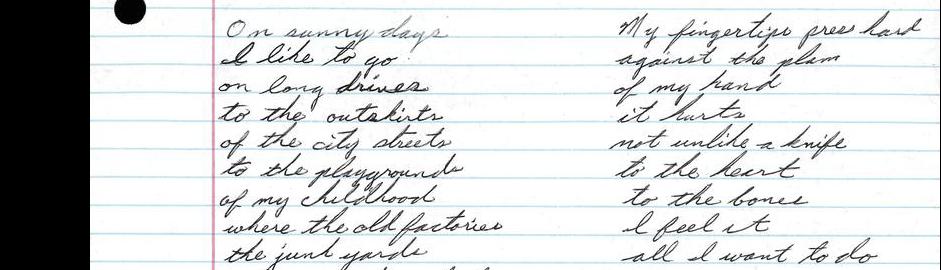 On sunny days
I like to go
on long drives
to the outskirts
of the city streets
to the playgrounds
of my childhood
where the old factories
the junk yards
My fingertips press hard
against the plam
of my hand
it hurts
not unlike a knife
to the heart
to the bones
I feel it
all I want to do